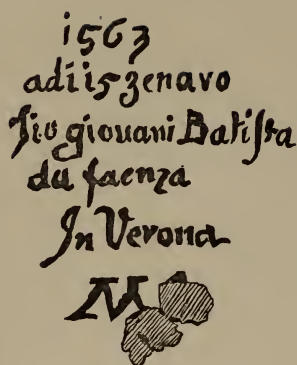 1563
adi 15 zenavo
Jio giovani Batista
da faenza
In Verona
M